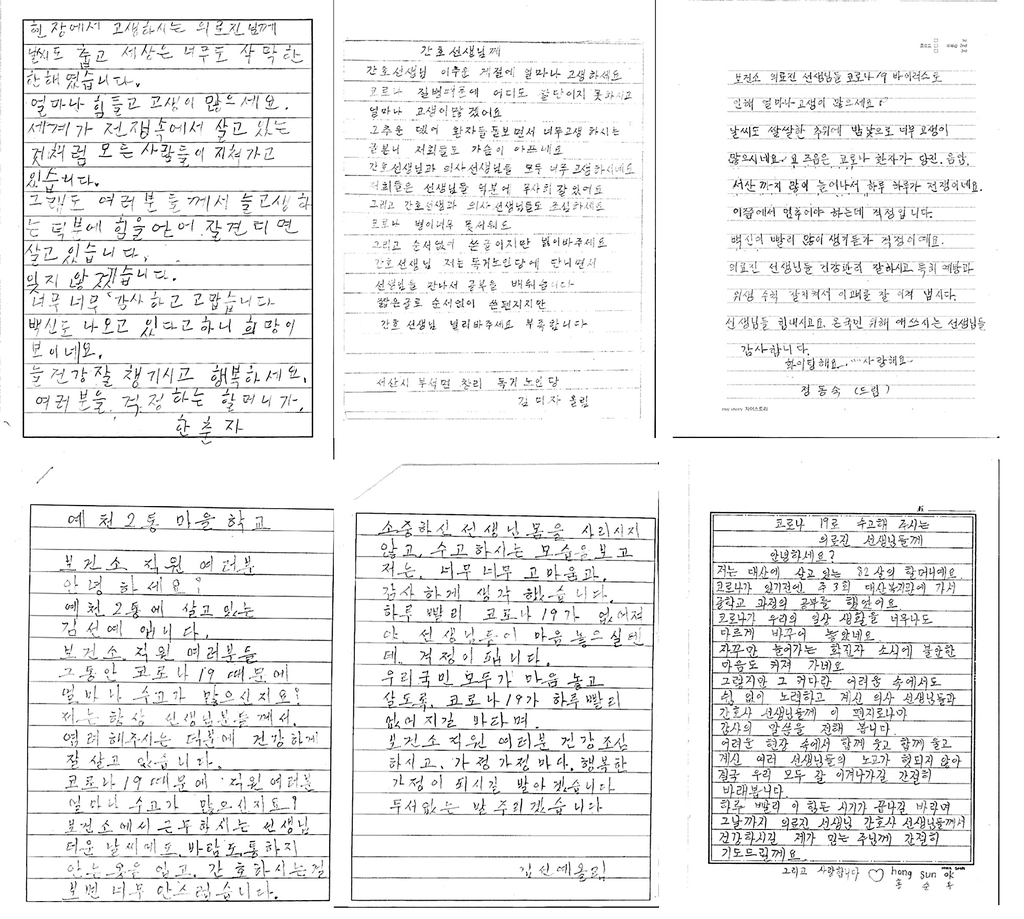 현장에서 고생하시는 의료진님께
날씨도 춥고 세상은 너무도 삭막한
한해였습니다.
얼마나 힘들고 고생이 많으세요.
세계가 전쟁속에서 살고 있는
것처럼 모든 사람들이 지쳐가고
있습니다.
그래도 여러분들께서 늘고생하
는 덕부에 힘을 얻어 잘견디면
살고 있습니다.
잊지 않겠습니다.
너무 너무 감사하고 고맙습니다
백신도 나오고 있다고하니 희망이
보이네요.
늘건강잘 챙기시고 행복하세요.
여러분을 걱정하는 할머니가.
한춘자
간호선생님께
간호선생님 이추운 계절에 얼마나 고생하세요
코로나 질병때문에 어디도 갈단이지 못하시고
얼마나 고생이많겠어요
그추운 데어 환자들돌보면서 너무고생 하시는
글본니 저희들도 가슴이 아프네요
간호선생님과 의사선생님들 모두 너무 고생하시네요
저희들은 선생님들 덕분에 무사히잘있어요
그리고 간호선생과 의사선생님들도 조심하세요
코로나 병이너무 무서워요
그리고 순서없이 쓴글이지만 읽어바주세요
간호선생님 저는 독거노인당에 단니면서
선생님을 만나서 공부를 배워습니다
짧은글로 순서없이 쓴편지지만
간호 선생님 널리바주세요 부족합니다
서산시 부석면 창리 독거노인당
김미자 올림
보건소 의료진 선생님들 코로나 19 바이러스로
인해 얼마나 고생이 많으세요?
날씨도 쌀쌀한 추위에 밤낮으로 너무 고생이
많으시네요. 요즈음은 코로나 환자가 당진. 음암.
서산까지 많이 늘어나서 하루 하루가 전쟁이네요.
이쯤에서 멈추어야 하는데 걱정입니다.
백신이 빨리 많이 생기든가 걱정이예요.
의료진 선생님들 건강관리 잘하시고 특히 예방과
위생 수칙 잘지켜서 이해를 잘 이겨 냅시다.
선생님들 힘내시고요. 온국민 위해 애쓰시는 선생님들
감사합니다.
화이팅해요.....사랑해요
정동숙 (드림)
my story 자이스토리
예천2통 마을학교
보건소 직원 여러분
안녕하세요?
예천2통에 살고있는
김선예 입니다.
보건소. 직원 여러분들
그동안 코로나19 때문에
얼마나 수고가 많으신지요?
저는 항상 선생님분들께서.
염려해주시는 덕분에 건강하게
잘살고 있습니다.
코로나19때문에 직원여러분
얼마나 수고가 많으신지요?
보건소에서 근무하시는 선생님
더운 날씨에도. 바람도.통하지
안는옷을 입고. 간호하시는걸
보면 너무 안스럽습니다.
소중하신선생님몸을 사리시지
않고. 수고하시는 모습을 보고
저는. 너무너무 고마움과.
감사하게 생각 했습니다.
하루 빨리 코로나19가 없어져
야 선생님들이 마음 놓으실텐
데. 걱정이 됩니다.
우리국민 모두가 마음 놓고
살도록. 코로나19가 하루빨리
없어지길 바라며.
보건소 직원 여러분 건강조심
하시고. 가정가정마다. 행복한
가정이 되시길 발아겠습니다
두서없는 말 주리겠습니다
김선예올림
코로나 19로 수고해 주시는
의료진 선생님들께
안녕하세요?
저는 대산에 살고 있는 82살의 할머니예요.
코로나가 있기전엔 주3회 대산복지관에 가서
중학교 과정의 공부를 했었어요
코로나가 우리의 일상 생활을 너무나도
다르게 바꾸어 놓았네요
자꾸만 늘어가는 확진자 소식에 불안한
마음도 커져 가네요
그렇지만 그 커다란 어려움 속에서도
쉼 없이 노력하고 계신 의사 선생님들과
간호사 선생님들께 이 편지로나마
감사의 말씀을 전해 봅니다
어려운 현장 속에서 함께 웃고 함께 울고
계신 여러 선생님들의 노고가 헛되지 않아
결국 우리 모두 잘 이겨나가길 간절히
바래봅니다
하루 빨리 이 힘든 시기가 끝나길 바라며
그날까지 의료진 선생님 간호사 선생님들께서
건강하시길 제가 믿는 주님께 간절히
기도드릴께요
그리고 사랑합니다 ♡ hong sun 야
홍 순